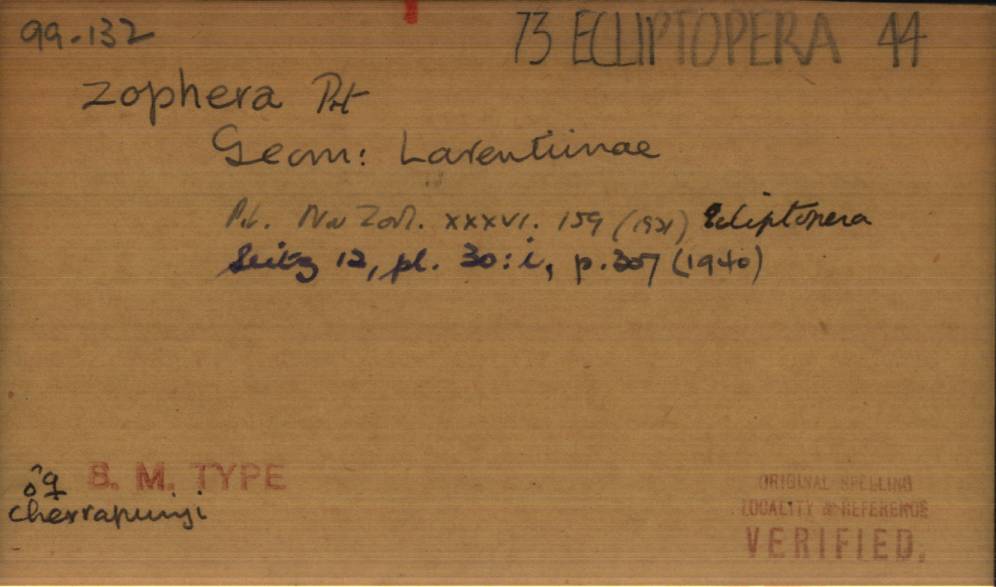 99-132 73 ECLIPTOPERA 44
zophera Prt
Geom: Larentiinae
Prt. Nov Zool. xxxvi. 159 (1931) Ecliptopera
Seitz 12, pl. 30:i, p.307 (1940)
♂♀ B. M. TYPE
cherrapunji
ORIGINAL SPELLING
LOCALITY & REFERENCE
VERIFIED.